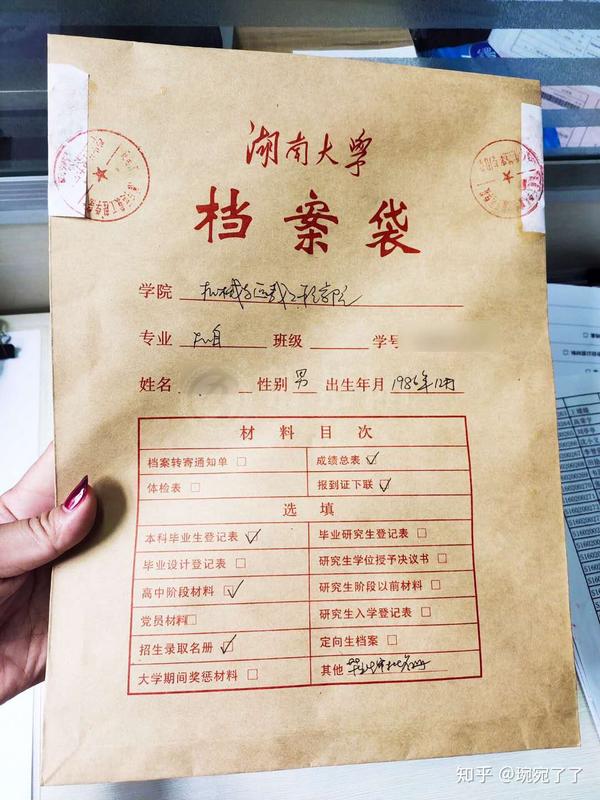 湖南大学
档案袋
学院 机械与运载工程学院
专业 机自 班级 学号
姓名 性别 男 出生年月 1986年12月
材料目次
档案转寄通知单 □ 成绩总表 ☑
体检表 □ 报到证下联 ☑
选填
本科毕业生登记表 ☑ 毕业研究生登记表 □
毕业设计登记表 □ 研究生学位授予决议书 □
高中阶段材料 ☑ 研究生阶段以前材料 □
党员材料 □ 研究生入学登记表 □
招生录取名册 ☑ 定向生档案 □
大学期间奖惩材料 □ 其他
知乎 @琬宛了了